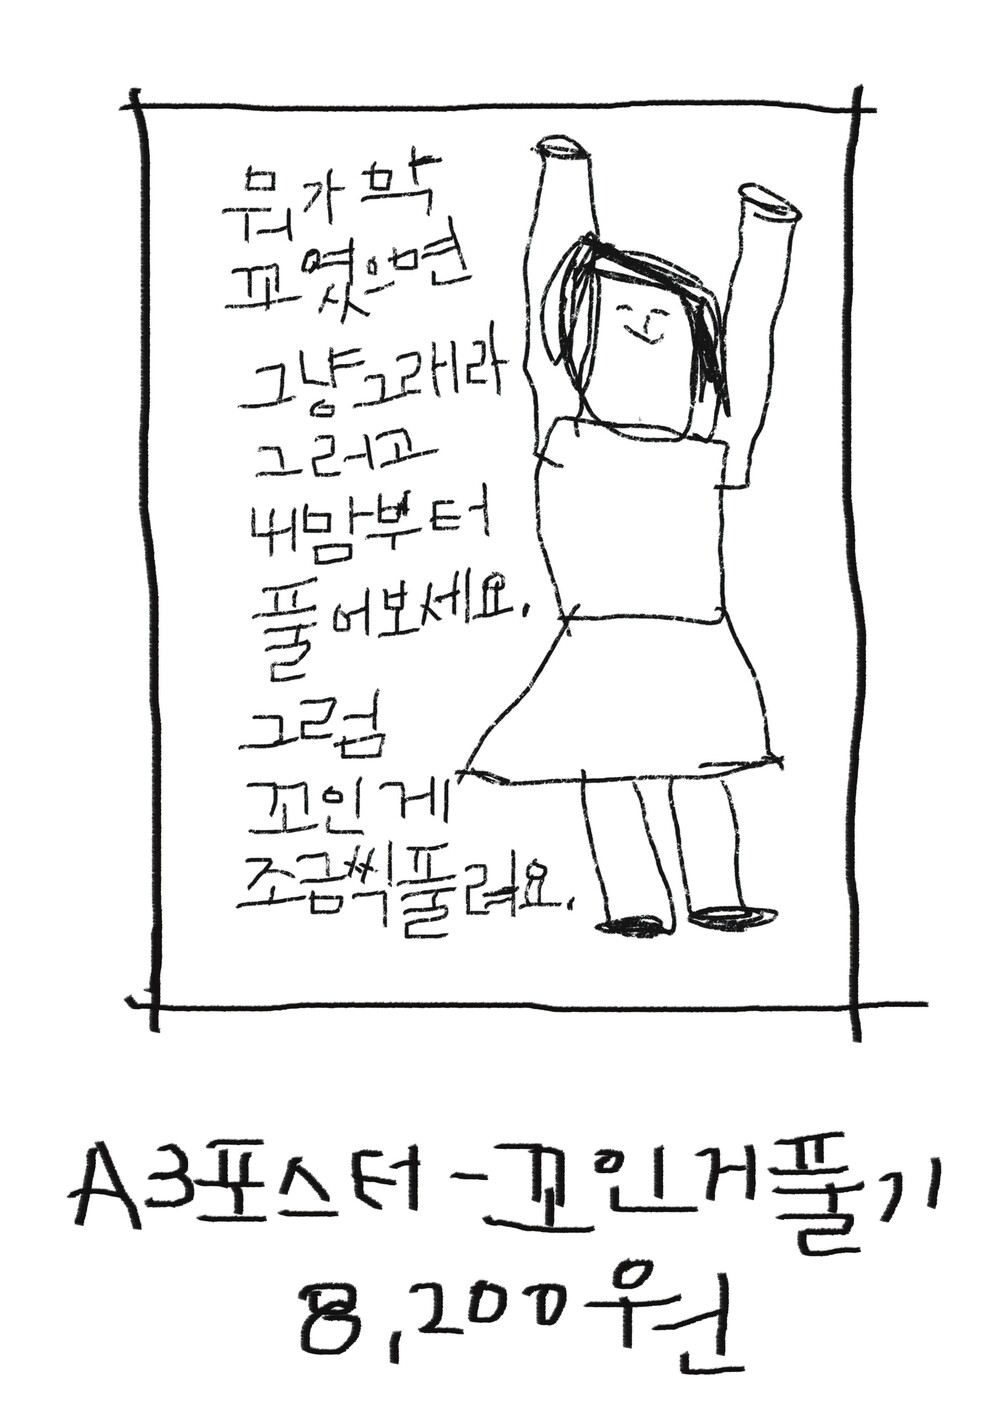 뭐가 확
꼬였으면
그냥 그래라
그러고
내맘부터
풀어보세요.
그럼
꼬인 게
조금씩 풀려요.
A3포스터-꼬인거풀기
8,200원